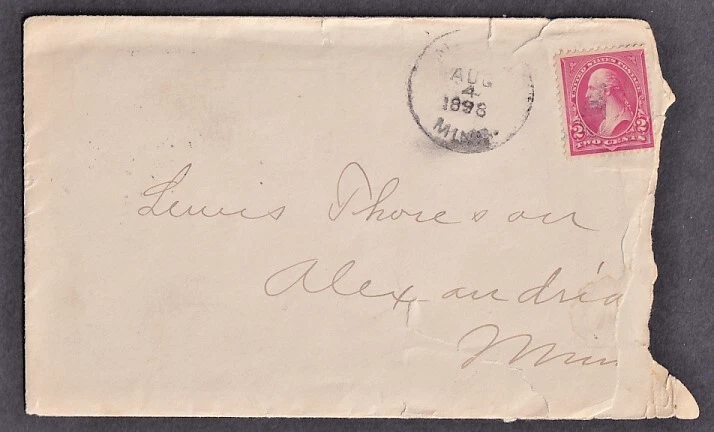 AUG
4
1898
MINN.
UNITED STATES POSTAGE
2 2
TWO CENTS
Lewis Thoreson
Alexandria
Minn